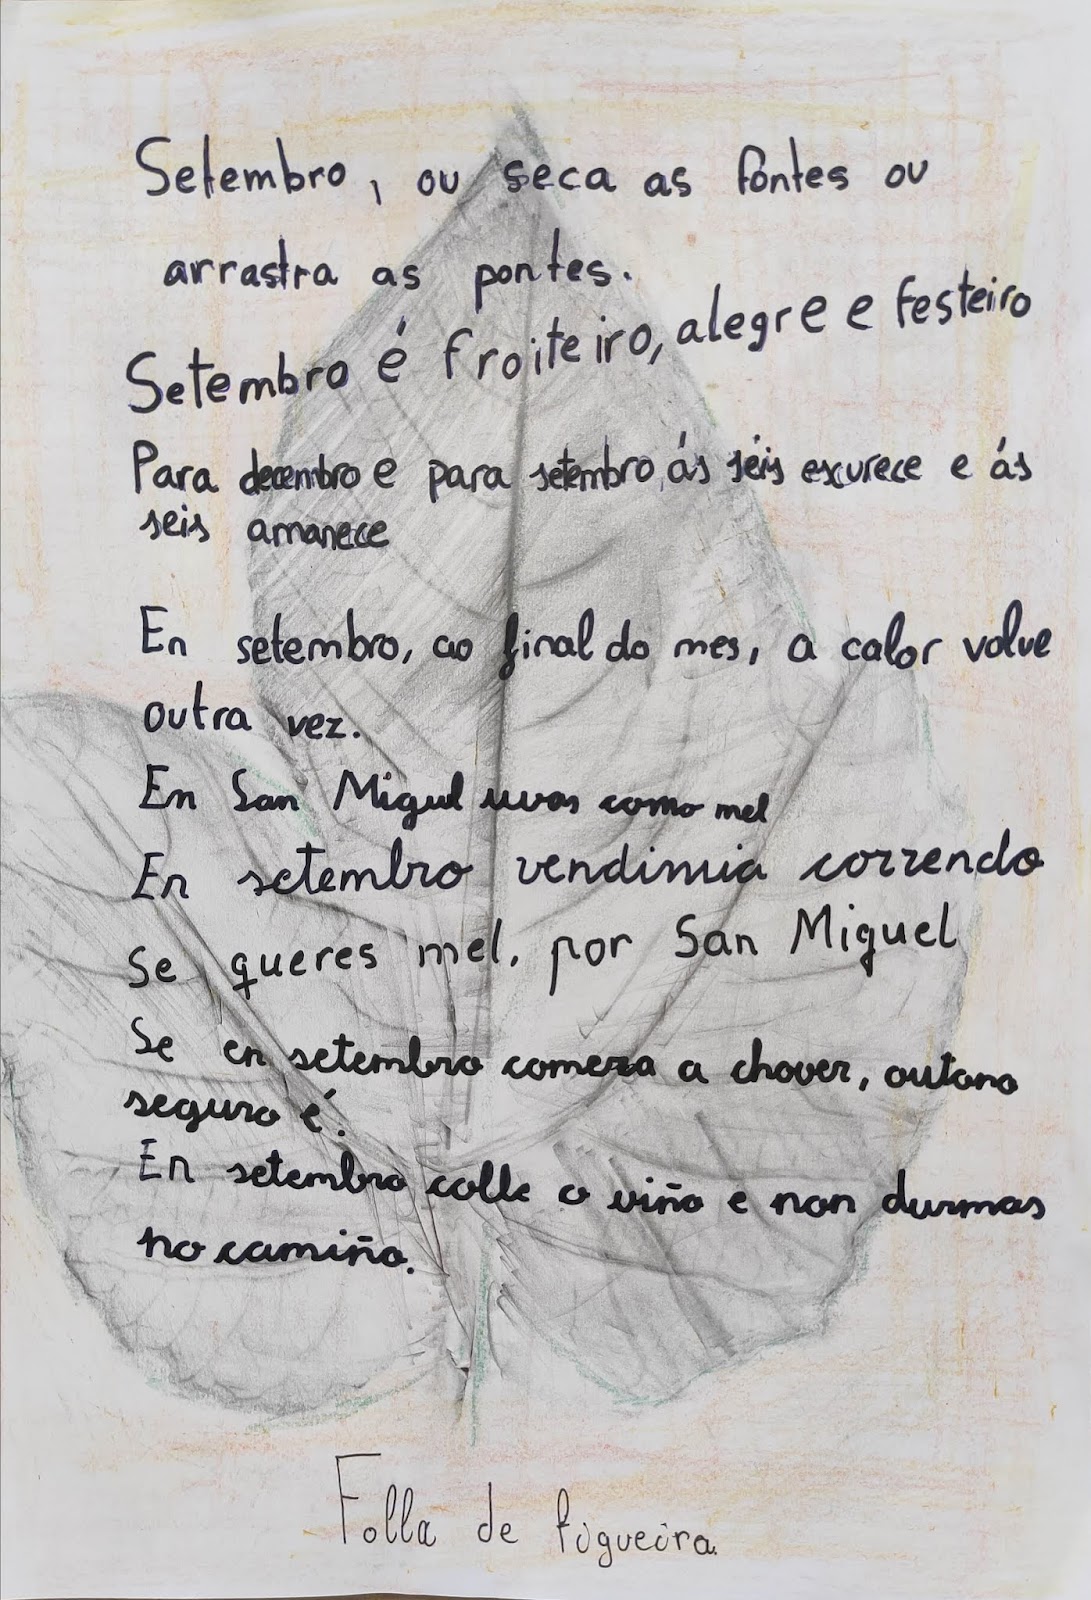 Setembro, ou seca as fontes ou
arrastra as pontes.
Setembro é froiteiro, alegre e festeiro
Para decembro e para setembro, ás seis escurece e ás
seis amanece
En setembro, ao final do mes, a calor volve
outra vez.
En San Miguel uvas como mel
En setembro vendimia correndo
Se queres mel, por San Miguel
Se en setembro comeza a chover, outono
seguro é.
En setembro colle o viño e non durmas
no camiño.
Folla de figueira